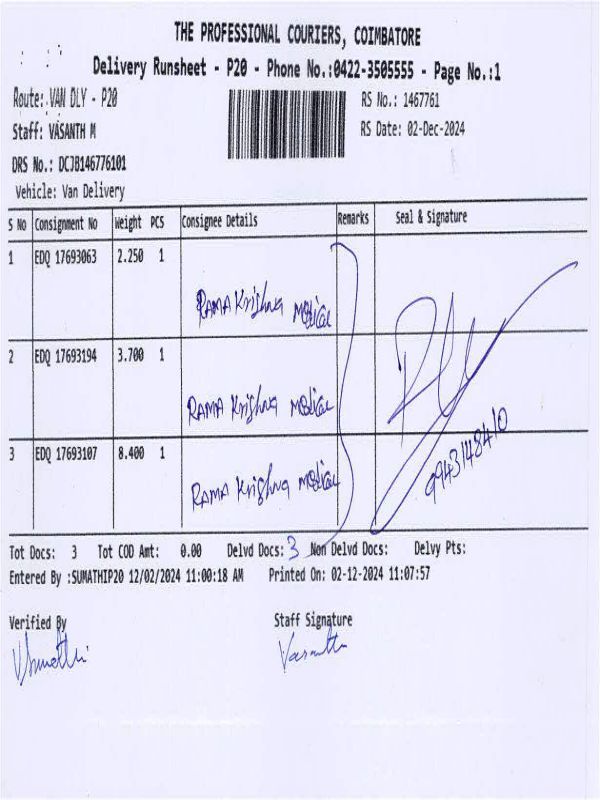 THE PROFESSIONAL COURIERS, COIMBATORE
Delivery Runsheet - P20 - Phone No.:0422-3505555 - Page No.:1
Route: VAN DLY - P20
RS No.: 1467761
Staff: VASANTH M
RS Date: 02-Dec-2024
DRS No.: DCJB146776101
Vehicle: Van Delivery
S No Consignment No Weight PCS Consignee Details Remarks Seal & Signature
1 EDQ 17693063 2.250 1
RAMA Krishna Medical
2 EDQ 17693194 3.700 1
RAMA Krishna Medical
3 EDQ 17693107 8.400 1
RAMA Krishna Medical
9943148410
Tot Docs: 3 Tot COD Amt: 0.00 Delvd Docs: 3 Non Delvd Docs: Delvy Pts:
Entered By :SUMATHIP20 12/02/2024 11:00:18 AM Printed On: 02-12-2024 11:07:57
Verified By Staff Signature
Vasanth